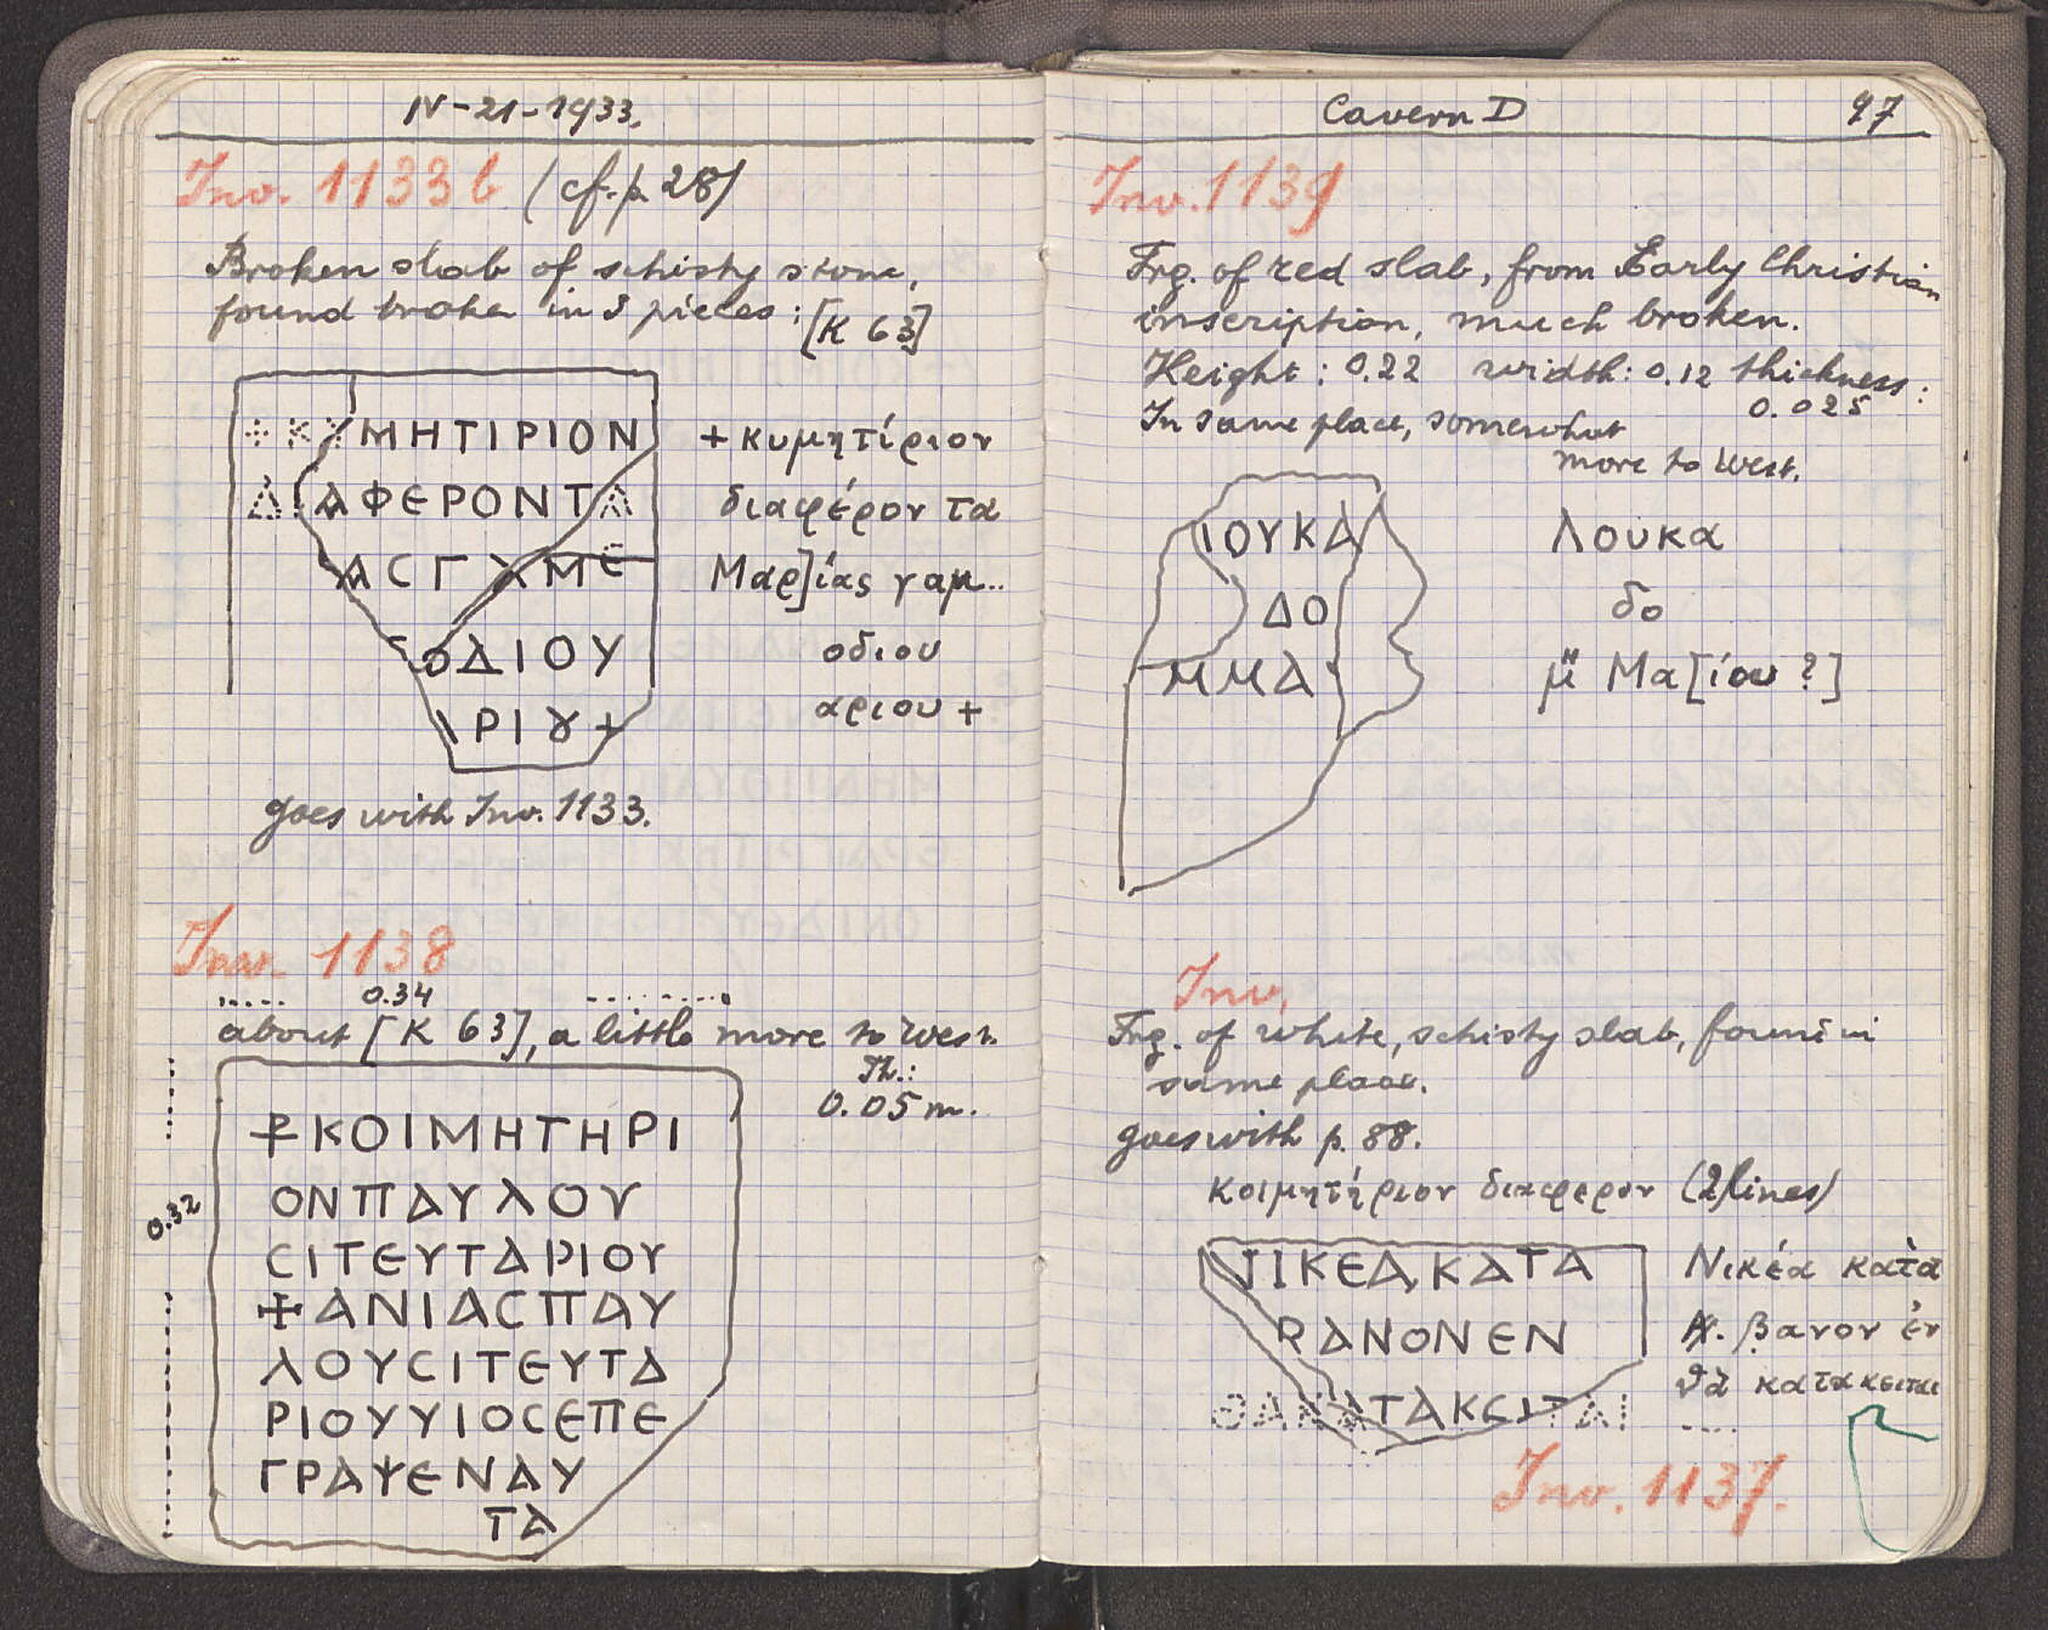 IV-21-1933.
Inv. 1133 b (cf. p. 28)
Broken slab of schisty stone,
found broken in 3 pieces: [K 63]
+ΚΥΜΗΤΙΡΙΟΝ
+ κυμητίριον
ΔΙΑΦΕΡΟΝΤΑ
διαφέρον τα
ΑϹΓΑΜΕ
Μαρ]ίας γαμ..
ΟΔΙΟΥ
οδιου
\ΡΙȢ+
αριου +
goes with Inv. 1133.
Inv. 1138
0.34
about [K 63], a little more to West.
Th.:
0.05 m.
0.32
⳨ΚΟΙΜΗΤΗΡΙ
ΟΝΠΑΥΛΟΥ
ϹΙΤΕΥΤΑΡΙΟΥ
✠ΑΝΙΑϹΠΑΥ
ΛΟΥϹΙΤΕΥΤΑ
ΡΙΟΥΥΙΟϹΕΠΕ
ΓΡΑΨΕΝΑΥ
ΤΑ
Cavern D 97
Inv. 1139
Frg. of red slab, from Early Christian
inscription, much broken.
Height: 0.22 width: 0.12 thickness:
0.025
In same place, somewhat
more to West.
ΙΟΥΚΑ
Λουκα
ΔΟ
δο
ΜΜΑ
μ̈ Μα[ίου ?]
Inv.
Frg. of white, schisty slab, found in
same place.
goes with p. 88.
κοιμητήριον διαφερον (2 lines)
ΝΙΚΕΑΚΑΤΑ
Νικέα κατὰ
ΒΑΝΟΝΕΝ
βανον ἐν
ΘΑΚΑΤΑΚΕΙΤΑΙ
θὰ κατακειται
....
Inv. 1137.